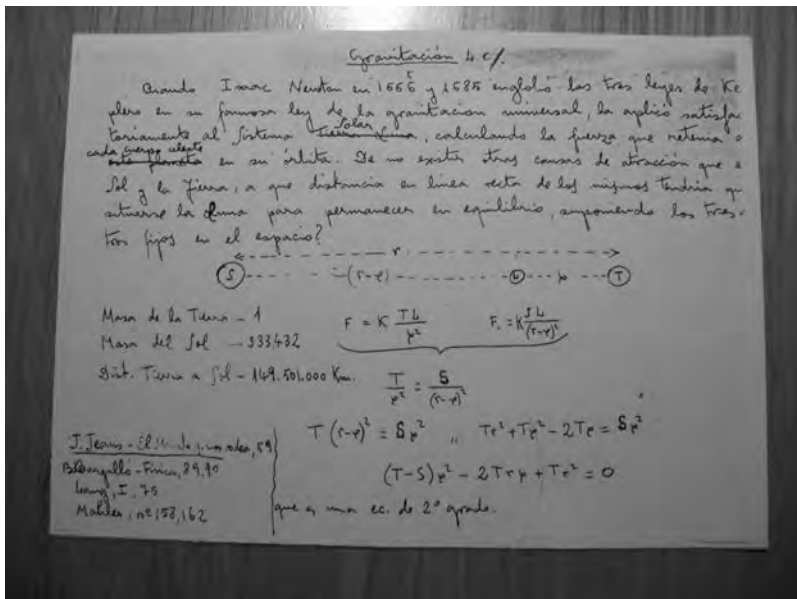 Gravitación 4 c/.
Cuando Isaac Newton en 1666 y 1685 englobó las tres leyes de Ke
plero en su famosa ley de la gravitacion universal, la aplicó satisfac
toriamente al Sistema Solar Tierra-Luna, calculando la fuerza que retenia a
cada cuerpo celeste este planeta en su órbita. De no existir otras causas de atracción que e
Sol y la Tierra, a que distancia en linea recta de los mismos tendria qu
situarse la Luna para permanecer en equilibrio, suponiendo los tres
tros fijos en el espacio?
r
S (r-ρ) L ρ T
Masa de la Tierra - 1
Masa del Sol - 333432
Dist. Tierra a Sol - 149.501.000 Km.
F = K TL/ρ² F₁ = K SL/(r-ρ)²
T/ρ² = S/(r-ρ)²
T(r-ρ)² = Sρ² ,, Tr²+Tρ²-2Tρ = Sρ²
(T-S)ρ² - 2Trρ + Tr² = 0
que es una ec. de 2º grado.
J. Jeans - 59
Física, 89,90
I, 75
nº 158,162